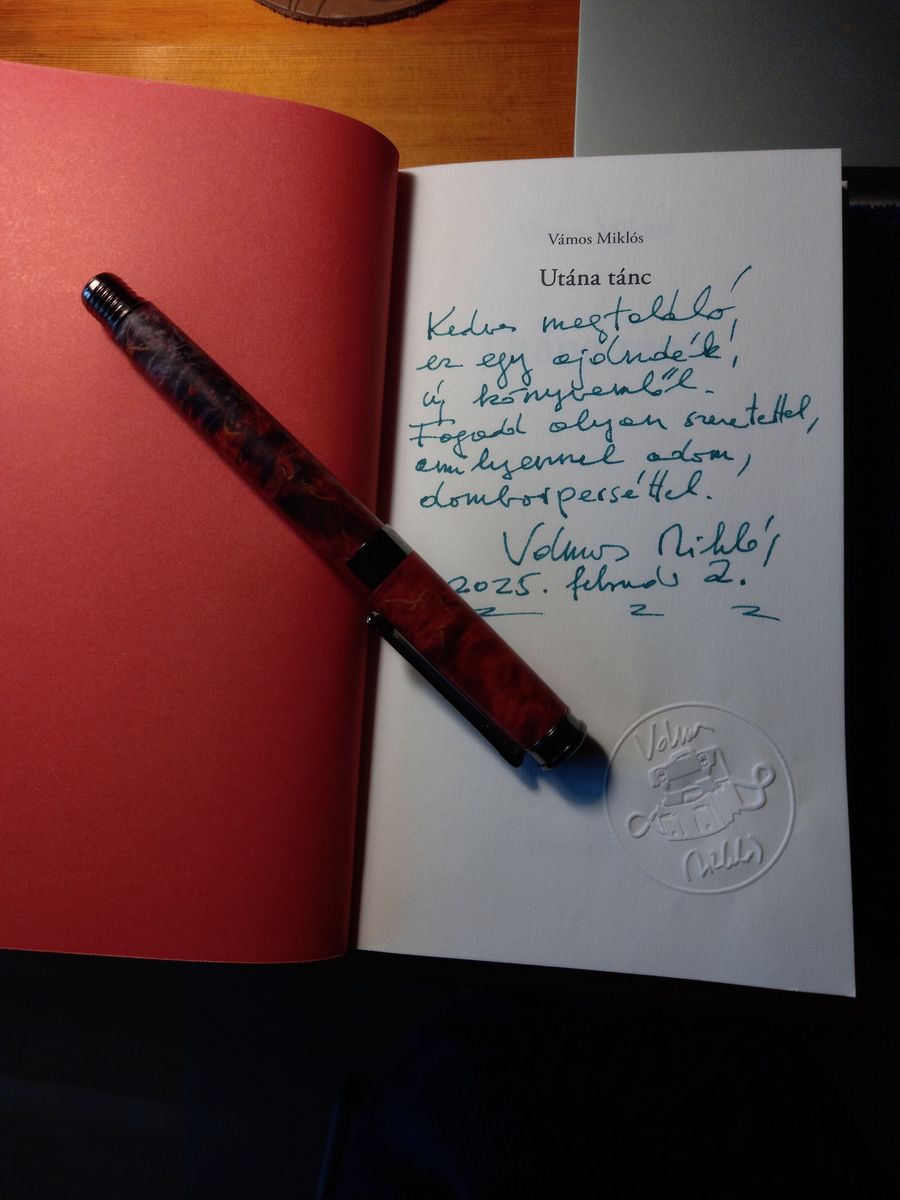 Vámos Miklós
Utána tánc
Kedves megtaláló,
ez egy ajándék,
új könyvemből.
Fogadd olyan szeretettel,
amilyennel adom,
domborperséttel.
Vámos Miklós
2025. február 2.
Vámos
Miklós